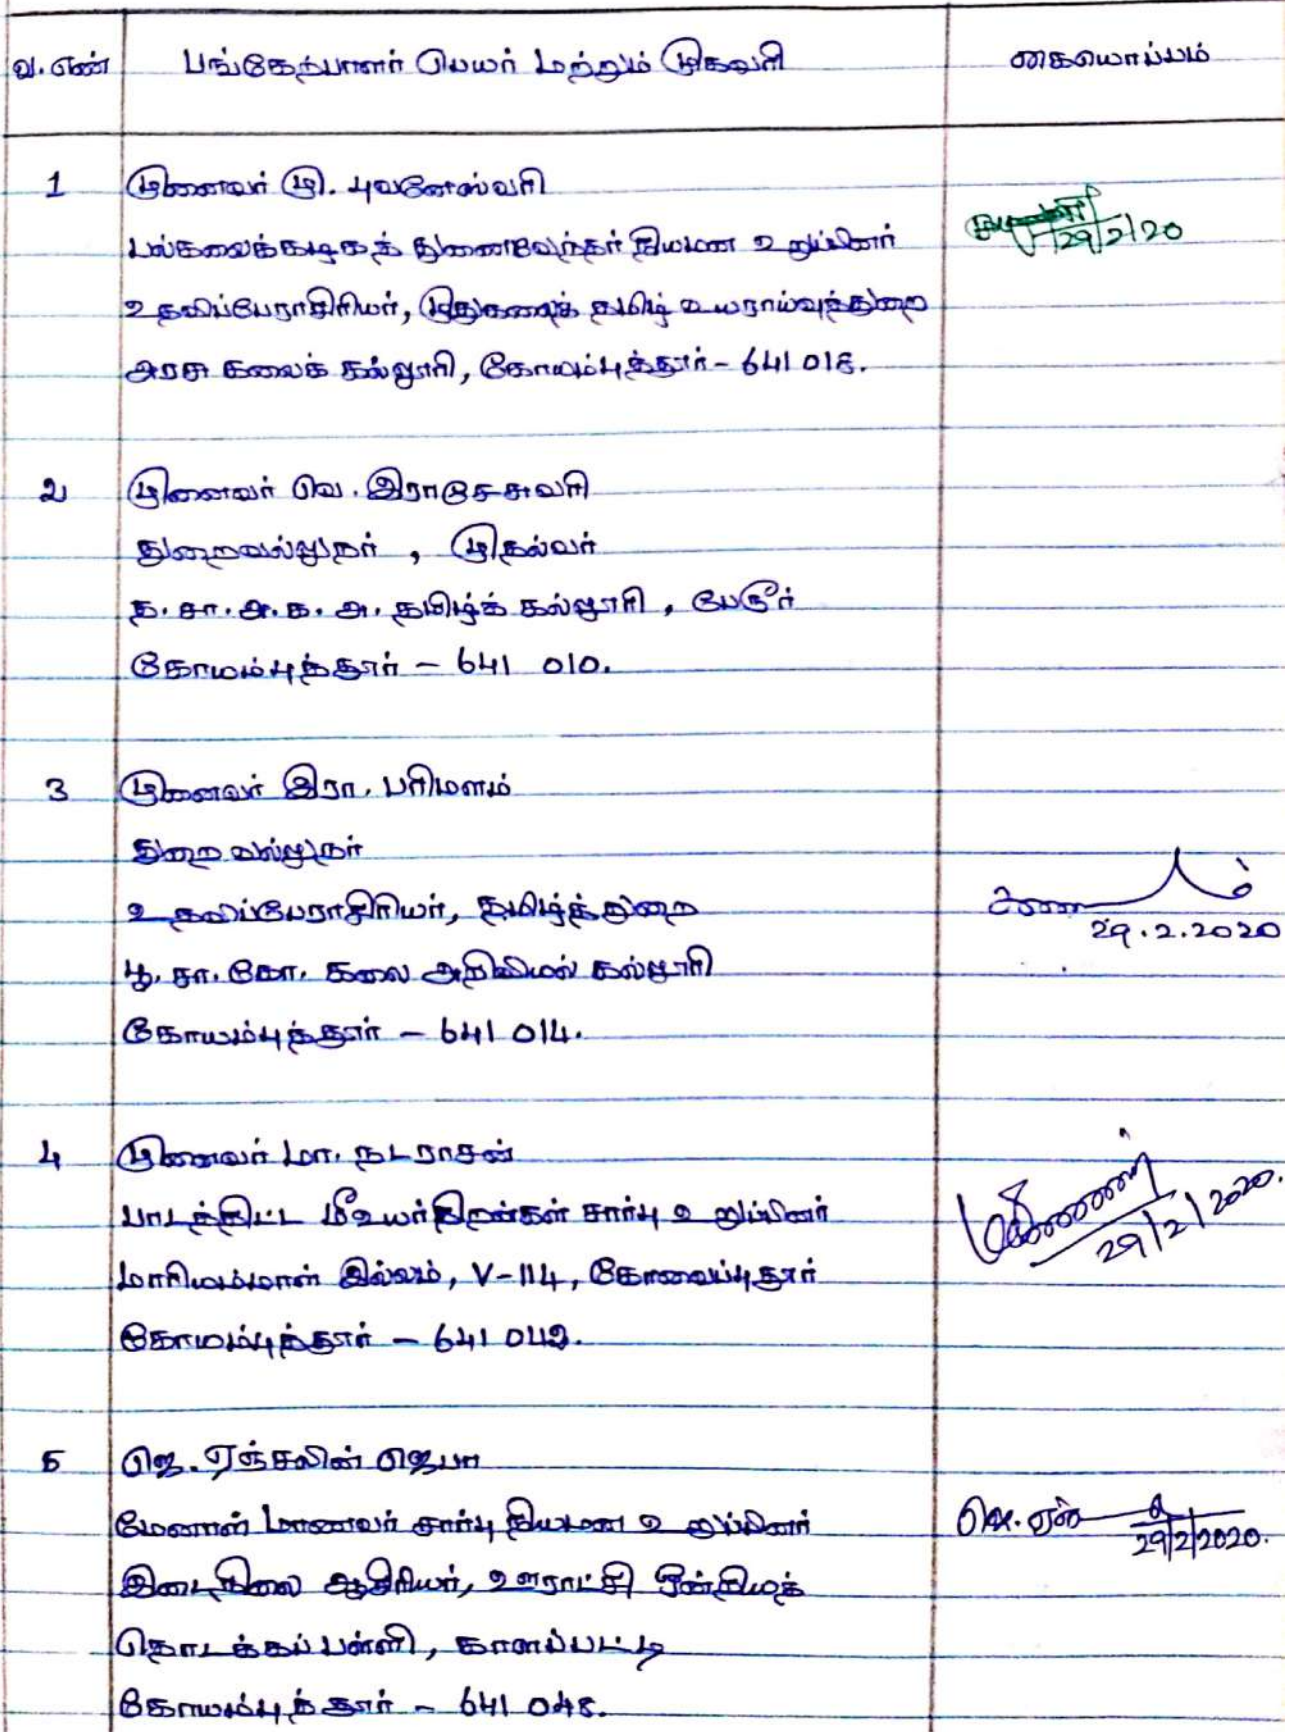 வ.எண் பங்கேற்பாளர் பெயர் மற்றும் முகவரி கையொப்பம்
1 முனைவர் மு. புவனேஸ்வரி
பல்கலைக்கழகத் துணைவேந்தர் நியமன உறுப்பினர்
29/2/20
உதவிப்பேராசிரியர், முதுகலைத் தமிழ் உயராய்வுத்துறை
அரசு கலைக் கல்லூரி, கோயம்புத்தூர் - 641 018.
2 முனைவர் வெ. இராஜேசுவரி
துறைவல்லுநர் , முதல்வர்
த. சா. அ. க. அ. தமிழ்க் கல்லூரி , பேரூர்
கோயம்புத்தூர் - 641 010.
3 முனைவர் இரா. பரிமளம்
துறை வல்லுநர்
உதவிப்பேராசிரியர், தமிழ்த்துறை
29.2.2020
பூ. சா. கோ. கலை அறிவியல் கல்லூரி
கோயம்புத்தூர் - 641 014.
4 முனைவர் மா. நடராசன்
பாடத்திட்ட மீஉயர்திறன்கள் சார்பு உறுப்பினர்
29/2/2020.
மாரியம்மாள் இல்லம், V-114, கோவைப்புதூர்
கோயம்புத்தூர் - 641 042.
5 ஜெ. ஏஞ்சலின் ஜெபா
மேனாள் மாணவர் சார்பு நியமன உறுப்பினர்
ஜெ. ஏஞ்
29/2/2020.
இடைநிலை ஆசிரியர், ஊராட்சி ஒன்றியத்
தொடக்கப்பள்ளி, காளப்பட்டி
கோயம்புத்தூர் - 641 048.